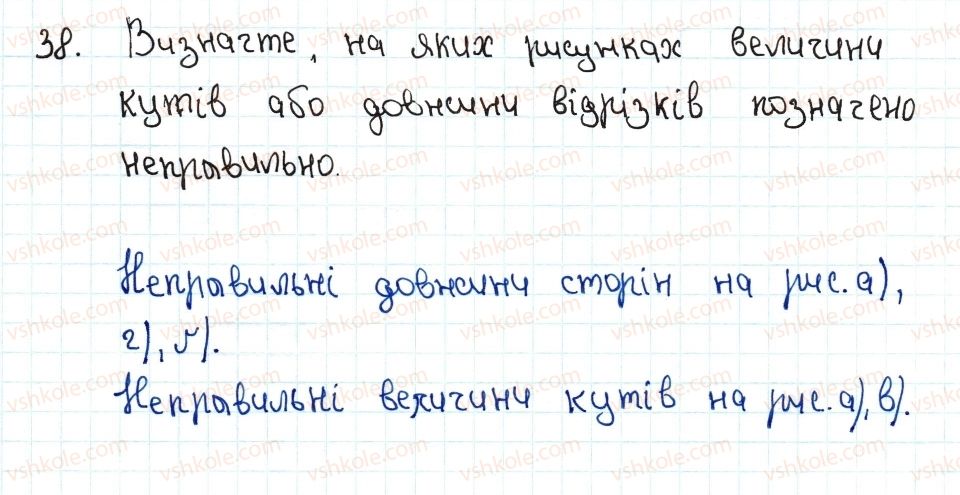 38. Визначте, на яких рисунках величини
кутів або довжини відрізків позначено
неправильно.
Неправильні довжини сторін на рис. а),
г), ґ).
Неправильні величини кутів на рис. а), в).
vshkole.com